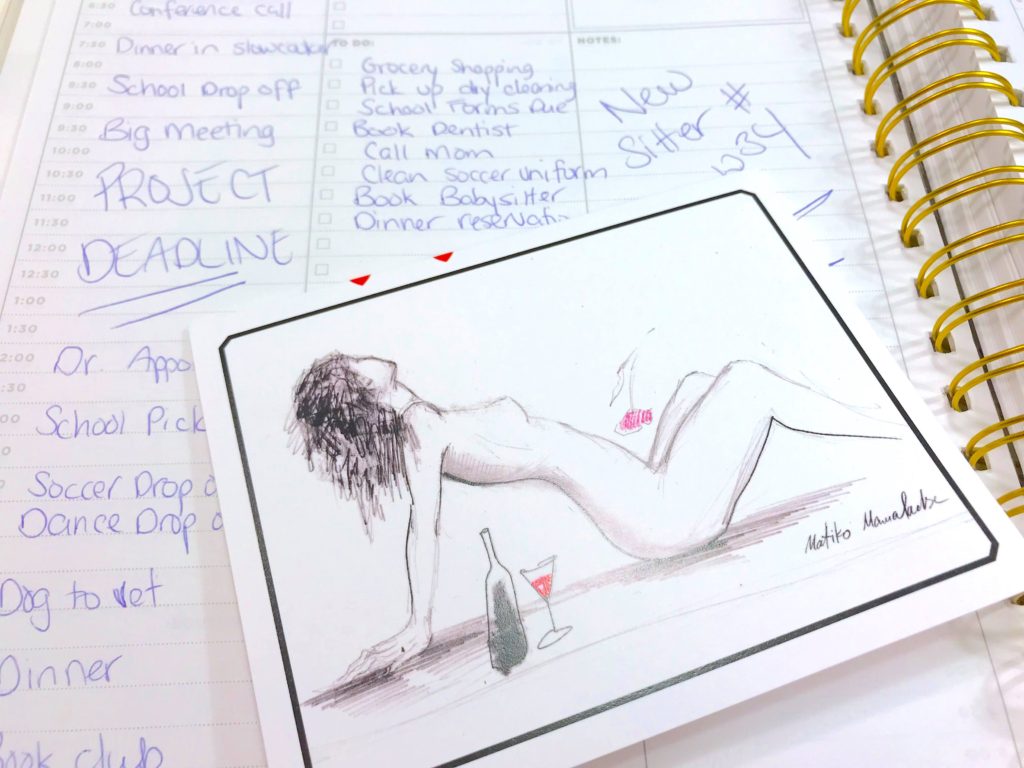 6:30 Conference call
7:00
7:30 Dinner in slowcooker
8:00
8:30 School Drop off
9:00
9:30 Big meeting
10:00
10:30 PROJECT
11:00
11:30
12:00 DEADLINE
12:30
1:00
1:30
2:00 Dr. Appo
:30
00 School Pick
Soccer Drop o
Dance Drop o
Dog to vet
Dinner
Book club
TO DO:
Grocery Shopping
Pick up dry cleaning
School Forms Due
Book Dentist
Call Mom
Clean soccer uniform
Book Babysitter
Dinner reservati
NOTES:
New
Sitter #
Matiko Mamaladze